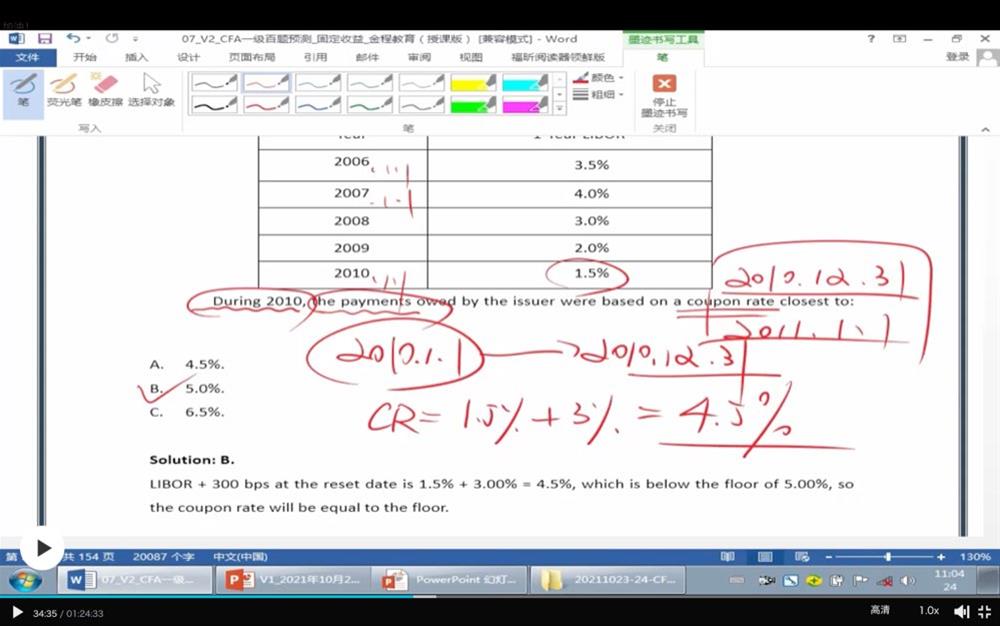 07_V2_CFA一级百题预测_固定收益_金程教育（授课版） [兼容模式] - Word
墨迹书写工具
文件 开始 插入 设计 页面布局 引用 邮件 审阅 视图 福昕阅读器领鲜版 笔 登录
笔 荧光笔 橡皮擦 选择对象
颜色
粗细
停止
墨迹书写
写入 笔 关闭
Year 1-Year LIBOR
2006 3.5%
2007 4.0%
2008 3.0%
2009 2.0%
2010 1.5%
2010.12.31
During 2010, the payments owed by the issuer were based on a coupon rate closest to:
2011.1.1
2010.1.1 → 2010.12.31
A. 4.5%.
B. 5.0%.
C. 6.5%.
CR= 1.5% + 3% = 4.5%
Solution: B.
LIBOR + 300 bps at the reset date is 1.5% + 3.00% = 4.5%, which is below the floor of 5.00%, so
the coupon rate will be equal to the floor.
第 共 154 页 20087 个字 中文(中国) 130%
07_V2_CFA一级... V1_2021年10月2... PowerPoint 幻灯... 20211023-24-CF...
11:04
24
34:35 / 01:24:33 高清 1.0x